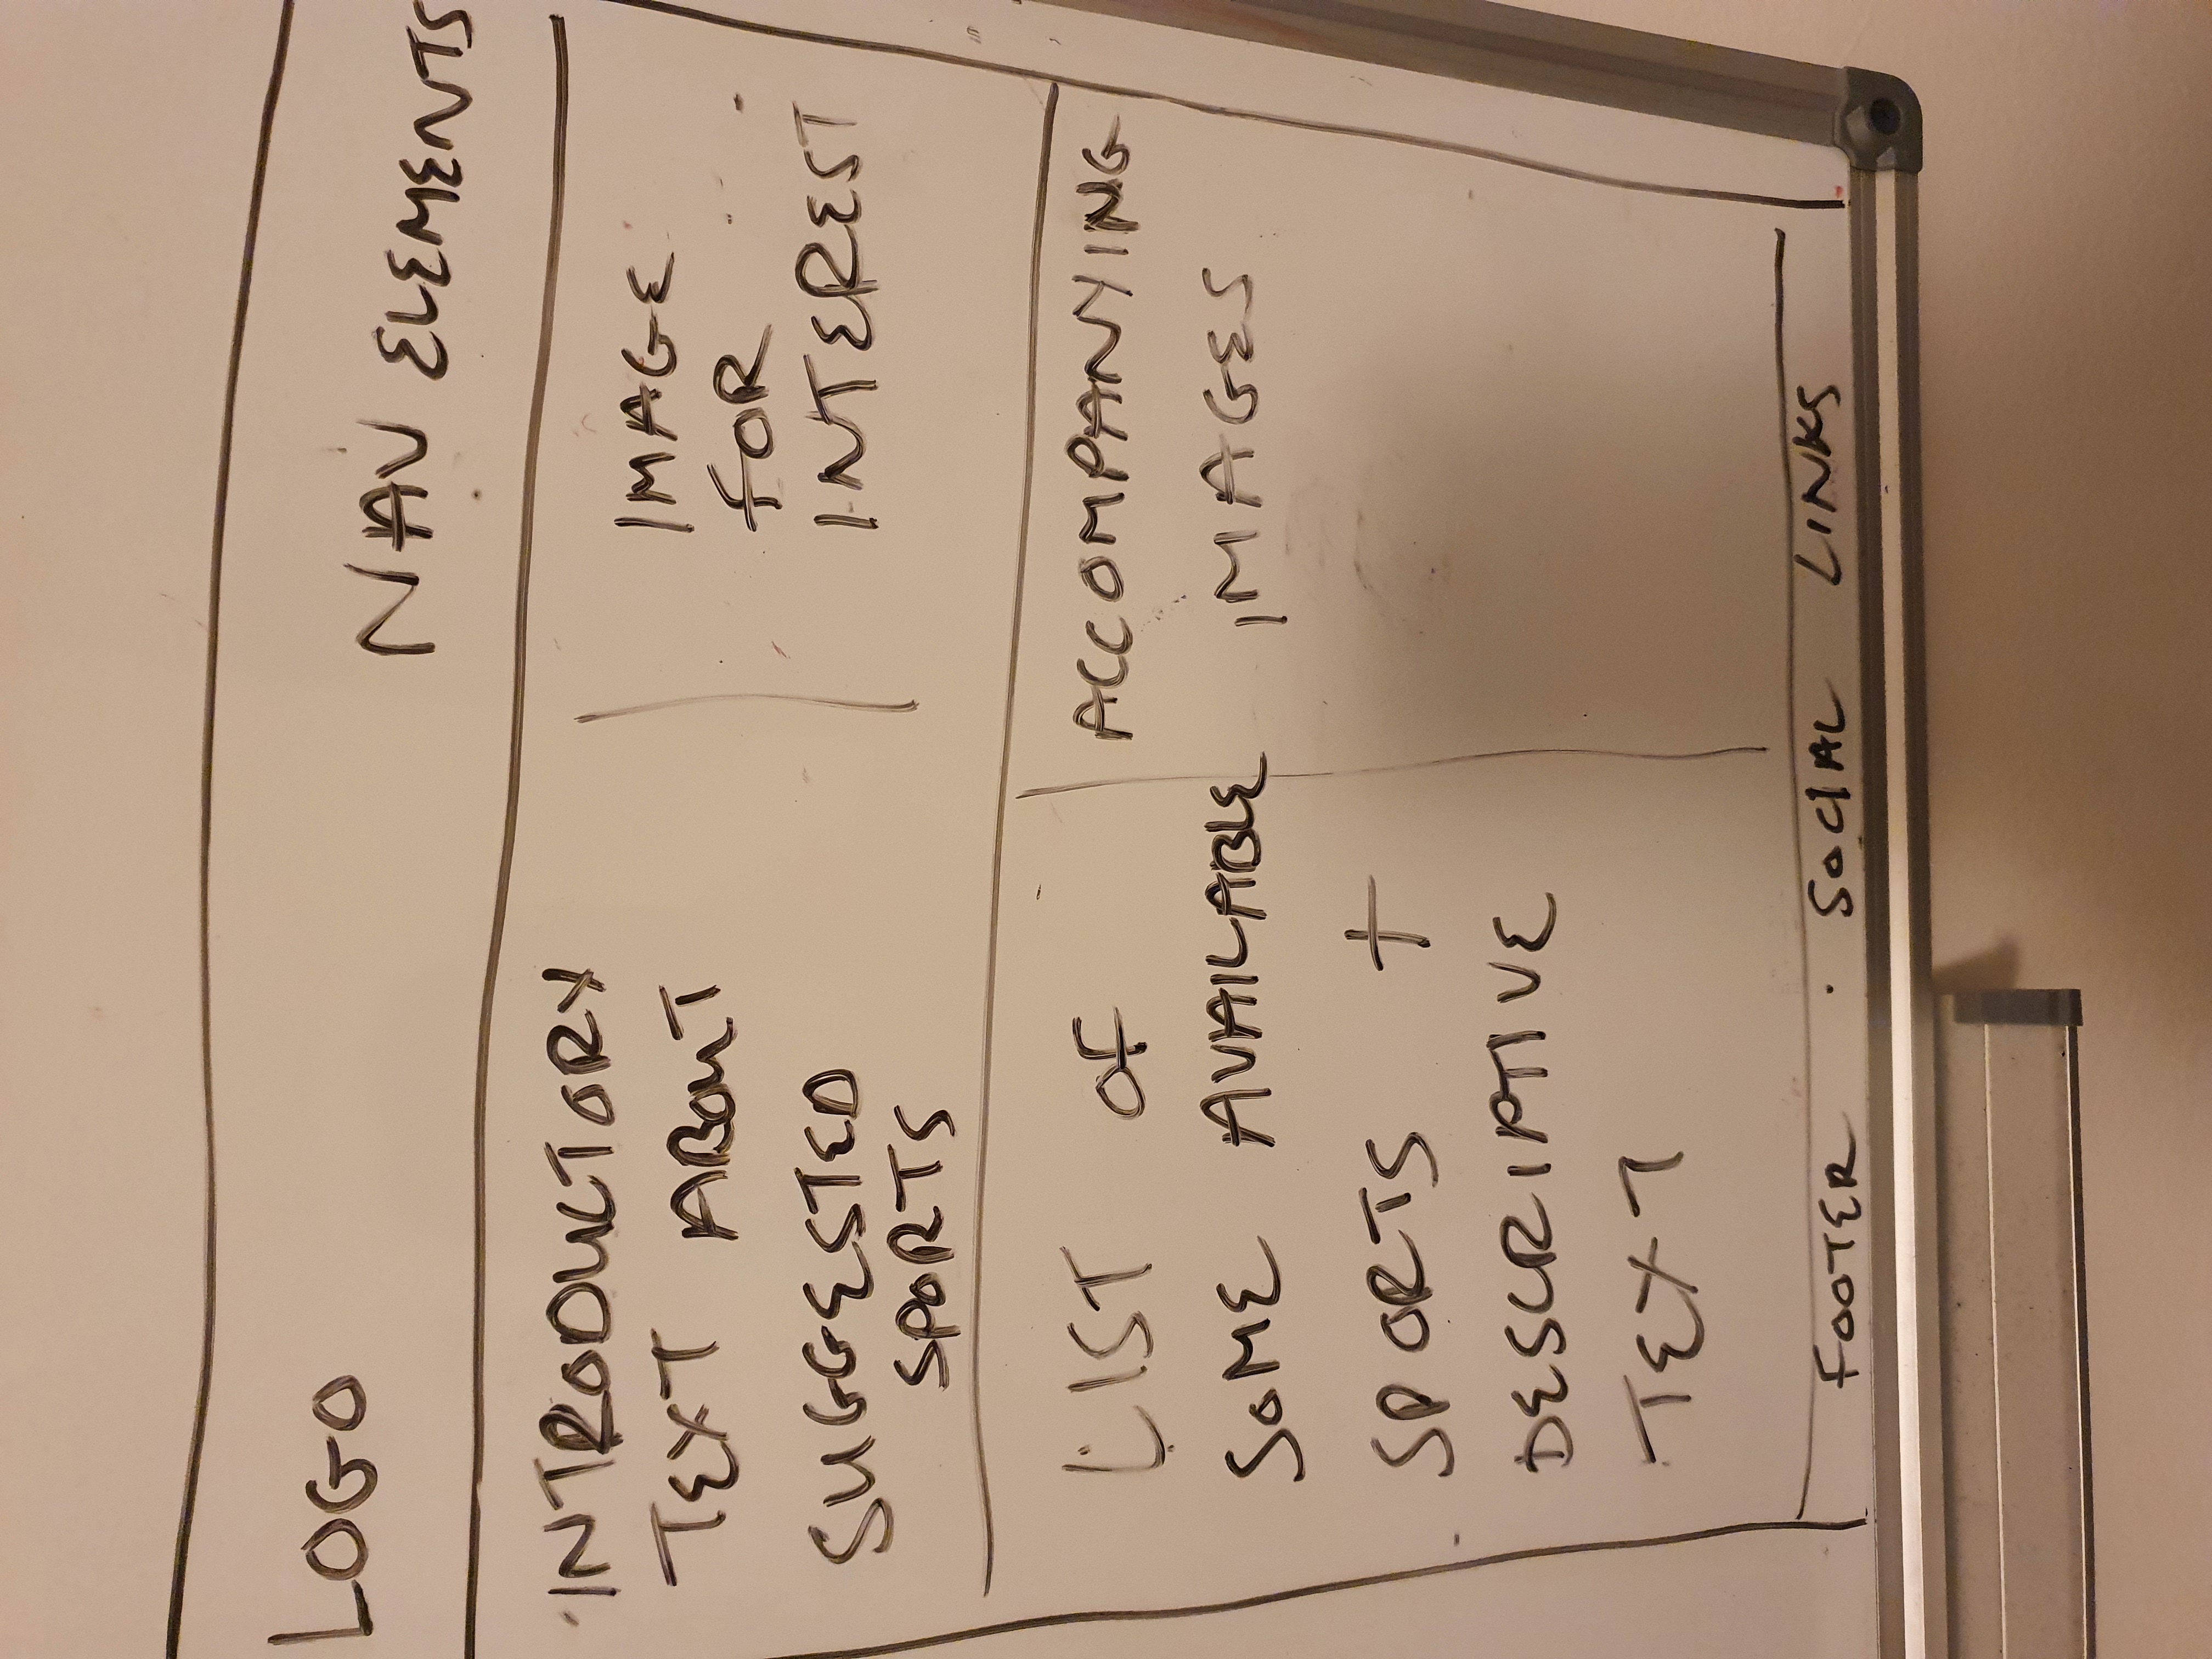 LOGO
NAV ELEMENTS
INTRODUCTORY
TEXT ABOUT
SUGGESTED
SPORTS
IMAGE
FOR
INTEREST
LIST OF
SOME AVAILABLE
SPORTS +
DESCRIPTIVE
TEXT
ACCOMPANYING
IMAGES
FOOTER · SOCIAL LINKS